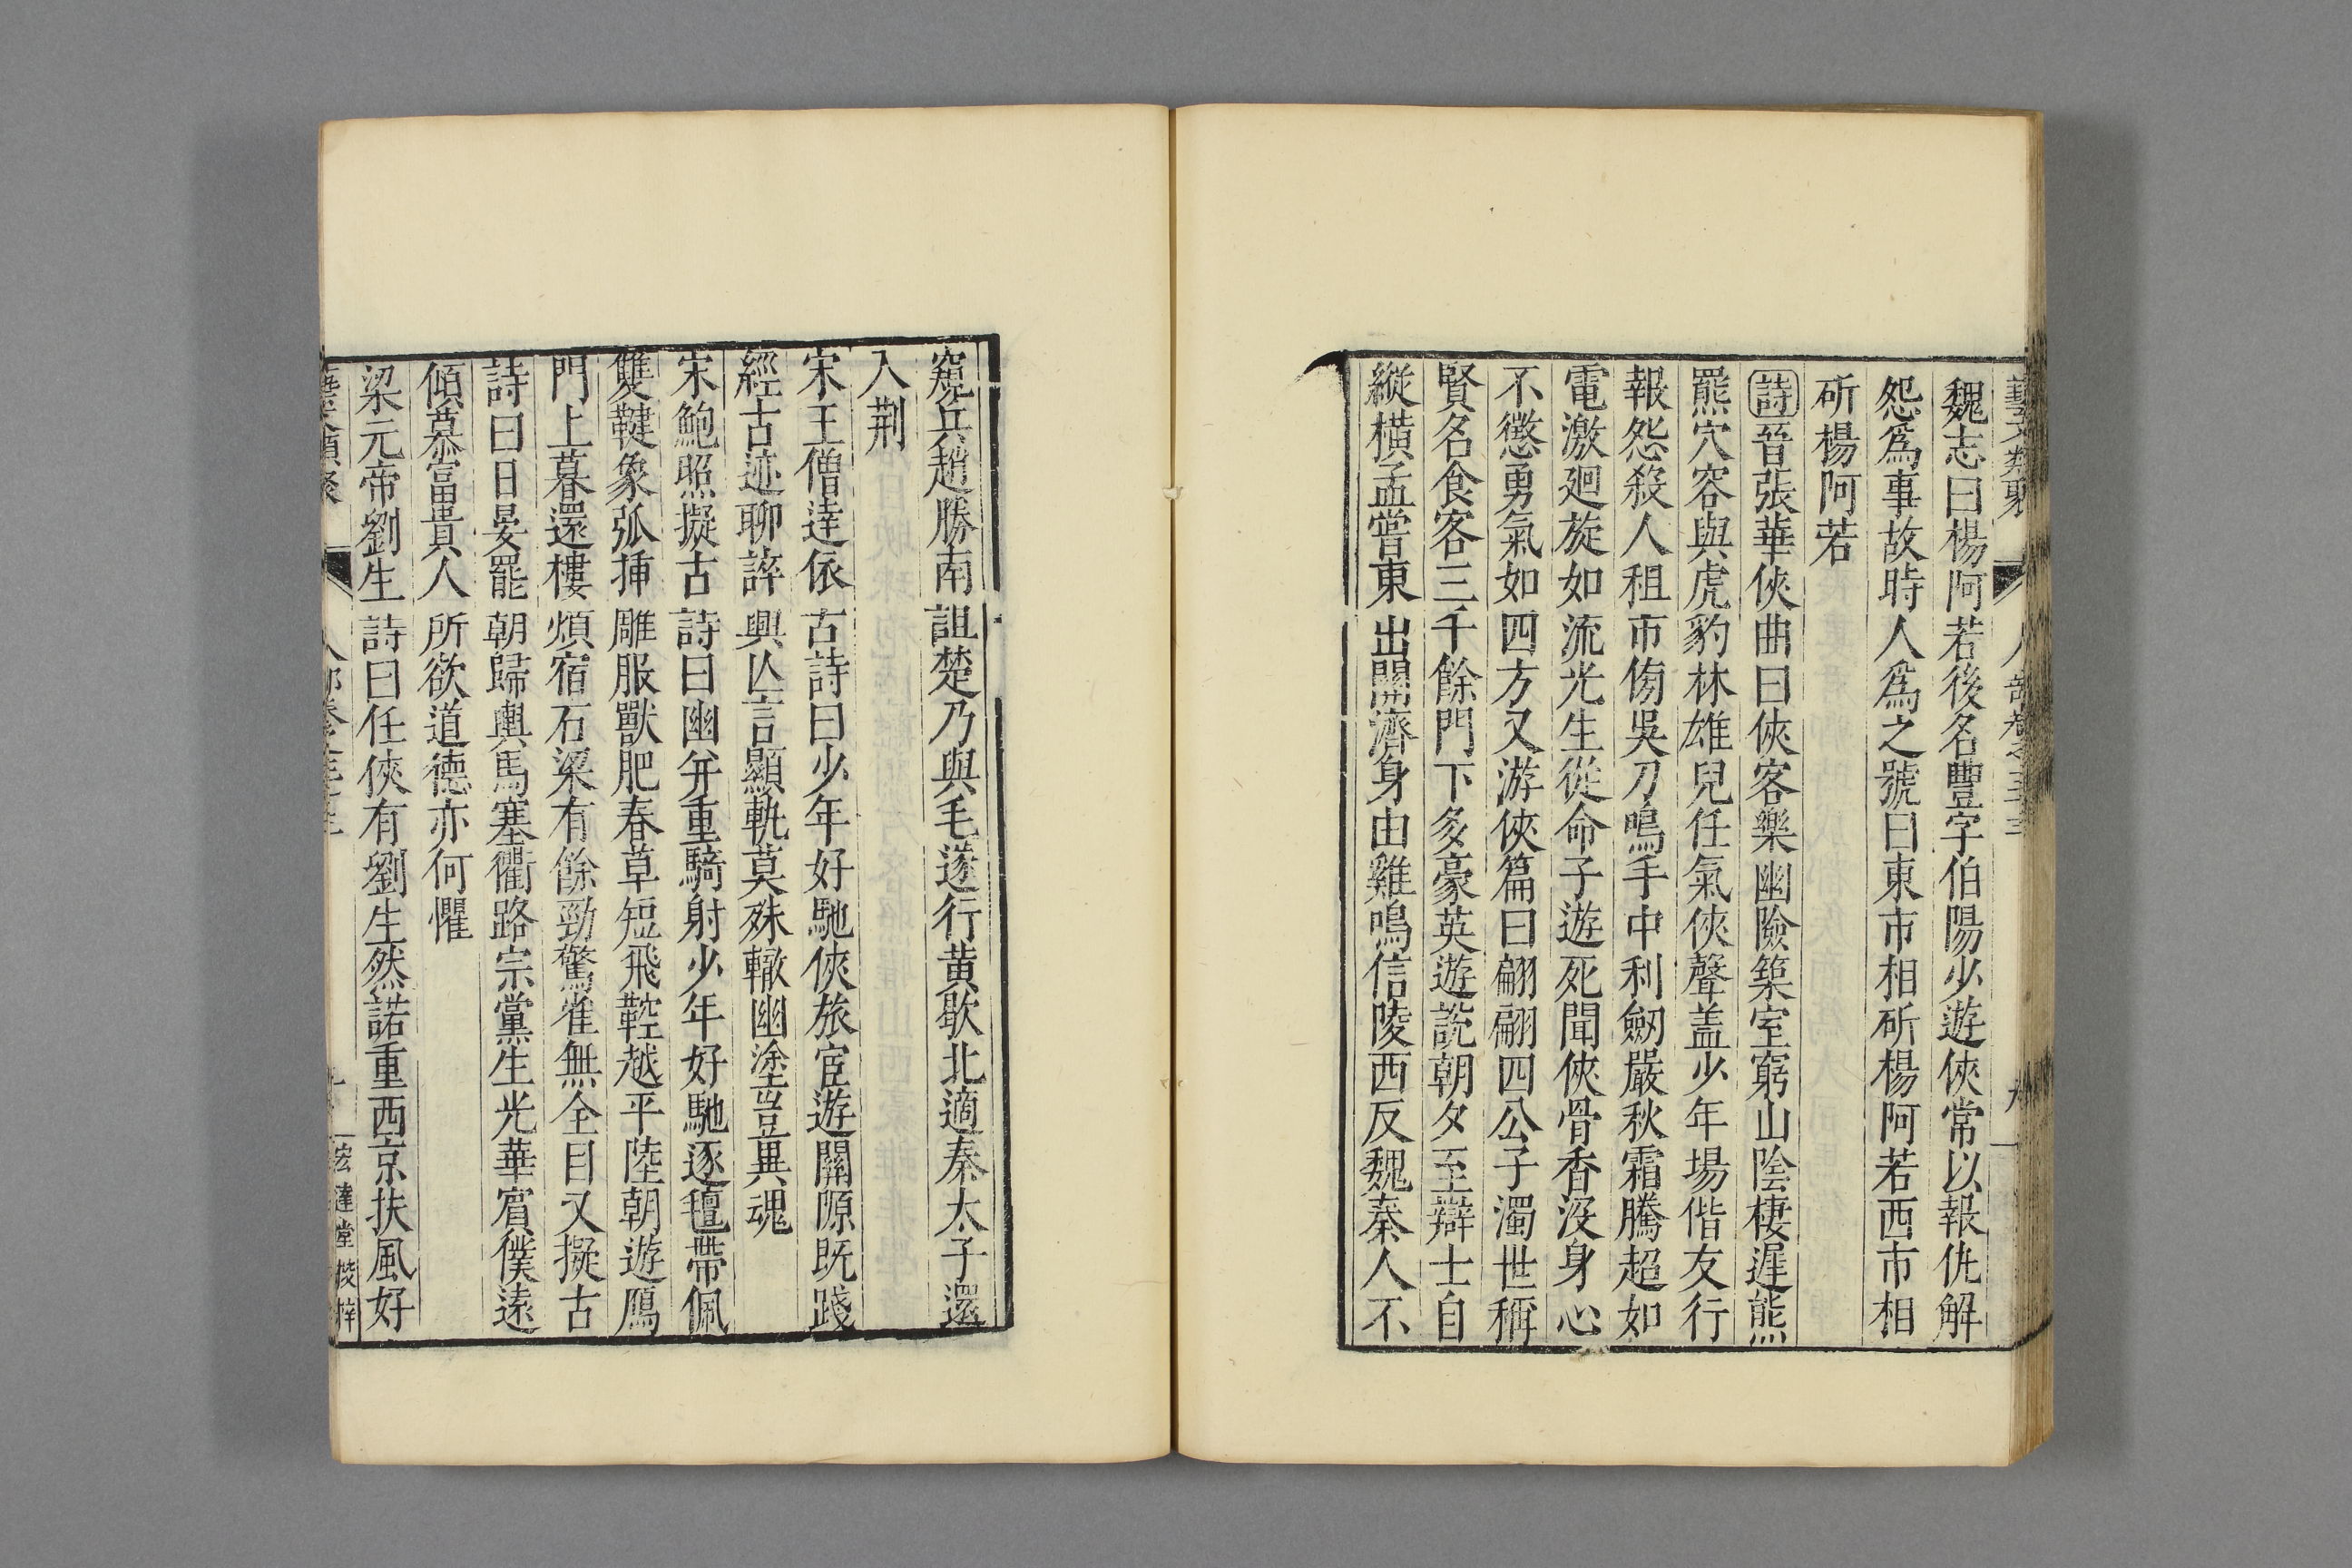 藝文類聚 人部卷之三十三 九
魏志曰楊阿若後名豐字伯陽少遊俠常以報仇解
怨爲事故時人爲之號曰東市相斫楊阿若西市相
斫楊阿若
詩晉張華俠曲曰俠客樂幽險築室窮山陰棲遲熊
羆穴容與虎豹林雄兒任氣俠聲盖少年場偕友行
報怨殺人租市傍吳刀鳴手中利劒嚴秋霜騰超如
電激廻旋如流光生從命子遊死聞俠骨香沒身心
不懲勇氣如四方又游俠篇曰翩翩四公子濁世稱
賢名食客三千餘門下多豪英遊説朝夕至辯士自
縱橫孟嘗東出關濟身由雞鳴信陵西反魏秦人不
窺兵趙勝南詛楚乃與毛遂行黄歇北適秦太子還
入荆
宋王僧達依古詩曰少年好馳俠旅宦遊關源既踐
經古迹聊訊興亾言顯軌莫殊轍幽塗豈異魂
宋鮑照擬古詩曰幽并重騎射少年好馳逐氊帶佩
雙鞬象弧揷雕服獸肥春草短飛鞚越平陸朝遊鴈
門上暮還樓煩宿石梁有餘勁驚雀無全目又擬古
詩曰日晏罷朝歸輿馬塞衢路宗黨生光華賔僕遠
傾慕富貴人所欲道德亦何懼
梁元帝劉生詩曰任俠有劉生然諾重西京扶風好
宏達堂校梓